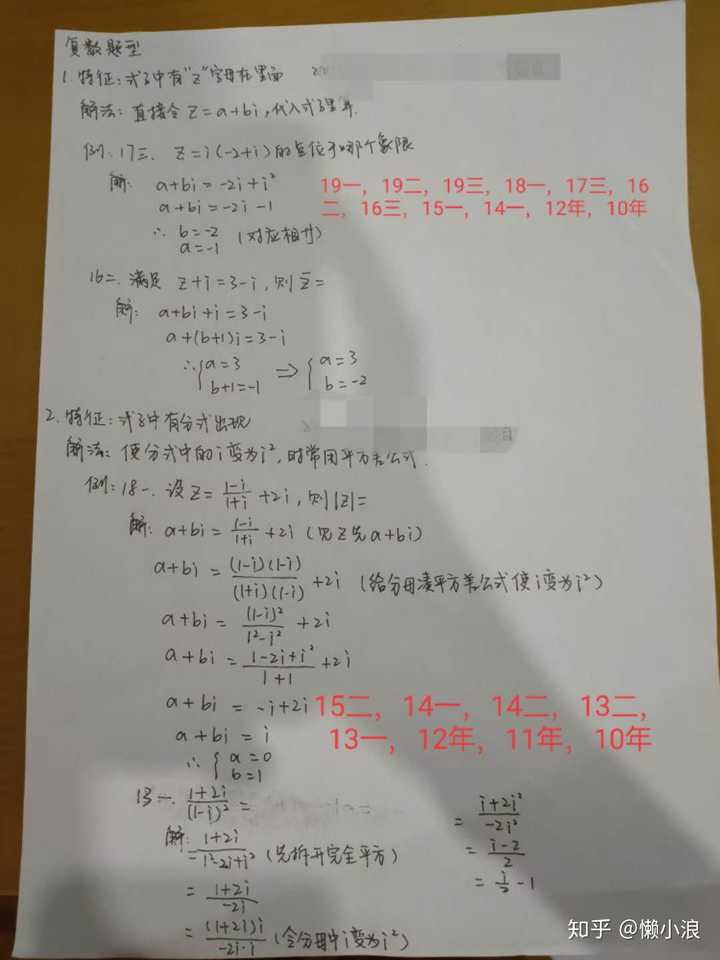 复数题型
1. 特征：式子中有“z”字母在里面
解法：直接令 z=a+bi，代入式子里算.
例：17三. z=i(-2+i)的点位于哪个象限
解： a+bi=-2i+i²
a+bi=-2i-1
∴ b=-2 (对应相等)
a=-1
19一，19二，19三，18一，17三，16
二，16三，15一，14一，12年，10年
16二. 满足 z+i=3-i，则z̄=
解： a+bi+i=3-i
a+(b+1)i=3-i
∴{a=3 ⇒ {a=3
b+1=-1 b=-2
2. 特征：式子中有分式出现
解法：使分式中的i变为i²，时常用平方差公式.
例：18一. 设z=(1-i)/(1+i)+2i，则|z|=
解：a+bi=(1-i)/(1+i)+2i (见z先a+bi)
a+bi=(1-i)(1-i)/(1+i)(1-i)+2i (给分母凑平方差公式使i变为i²)
a+bi=(1-i)²/1²-i²+2i
a+bi=1-2i+i²/1+1+2i
a+bi=-i+2i
a+bi=i
∴{a=0
b=1
15二，14一，14二，13二，
13一，12年，11年，10年
13一. 1+2i/(1-i)²=
解：=1+2i/1²-2i+i² (先拆开完全平方)
=1+2i/-2i
=(1+2i)i/-2i·i (令分母中i变为i²)
=i+2i²/-2i²
=i-2/2
=i/2-1
知乎 @懒小浪